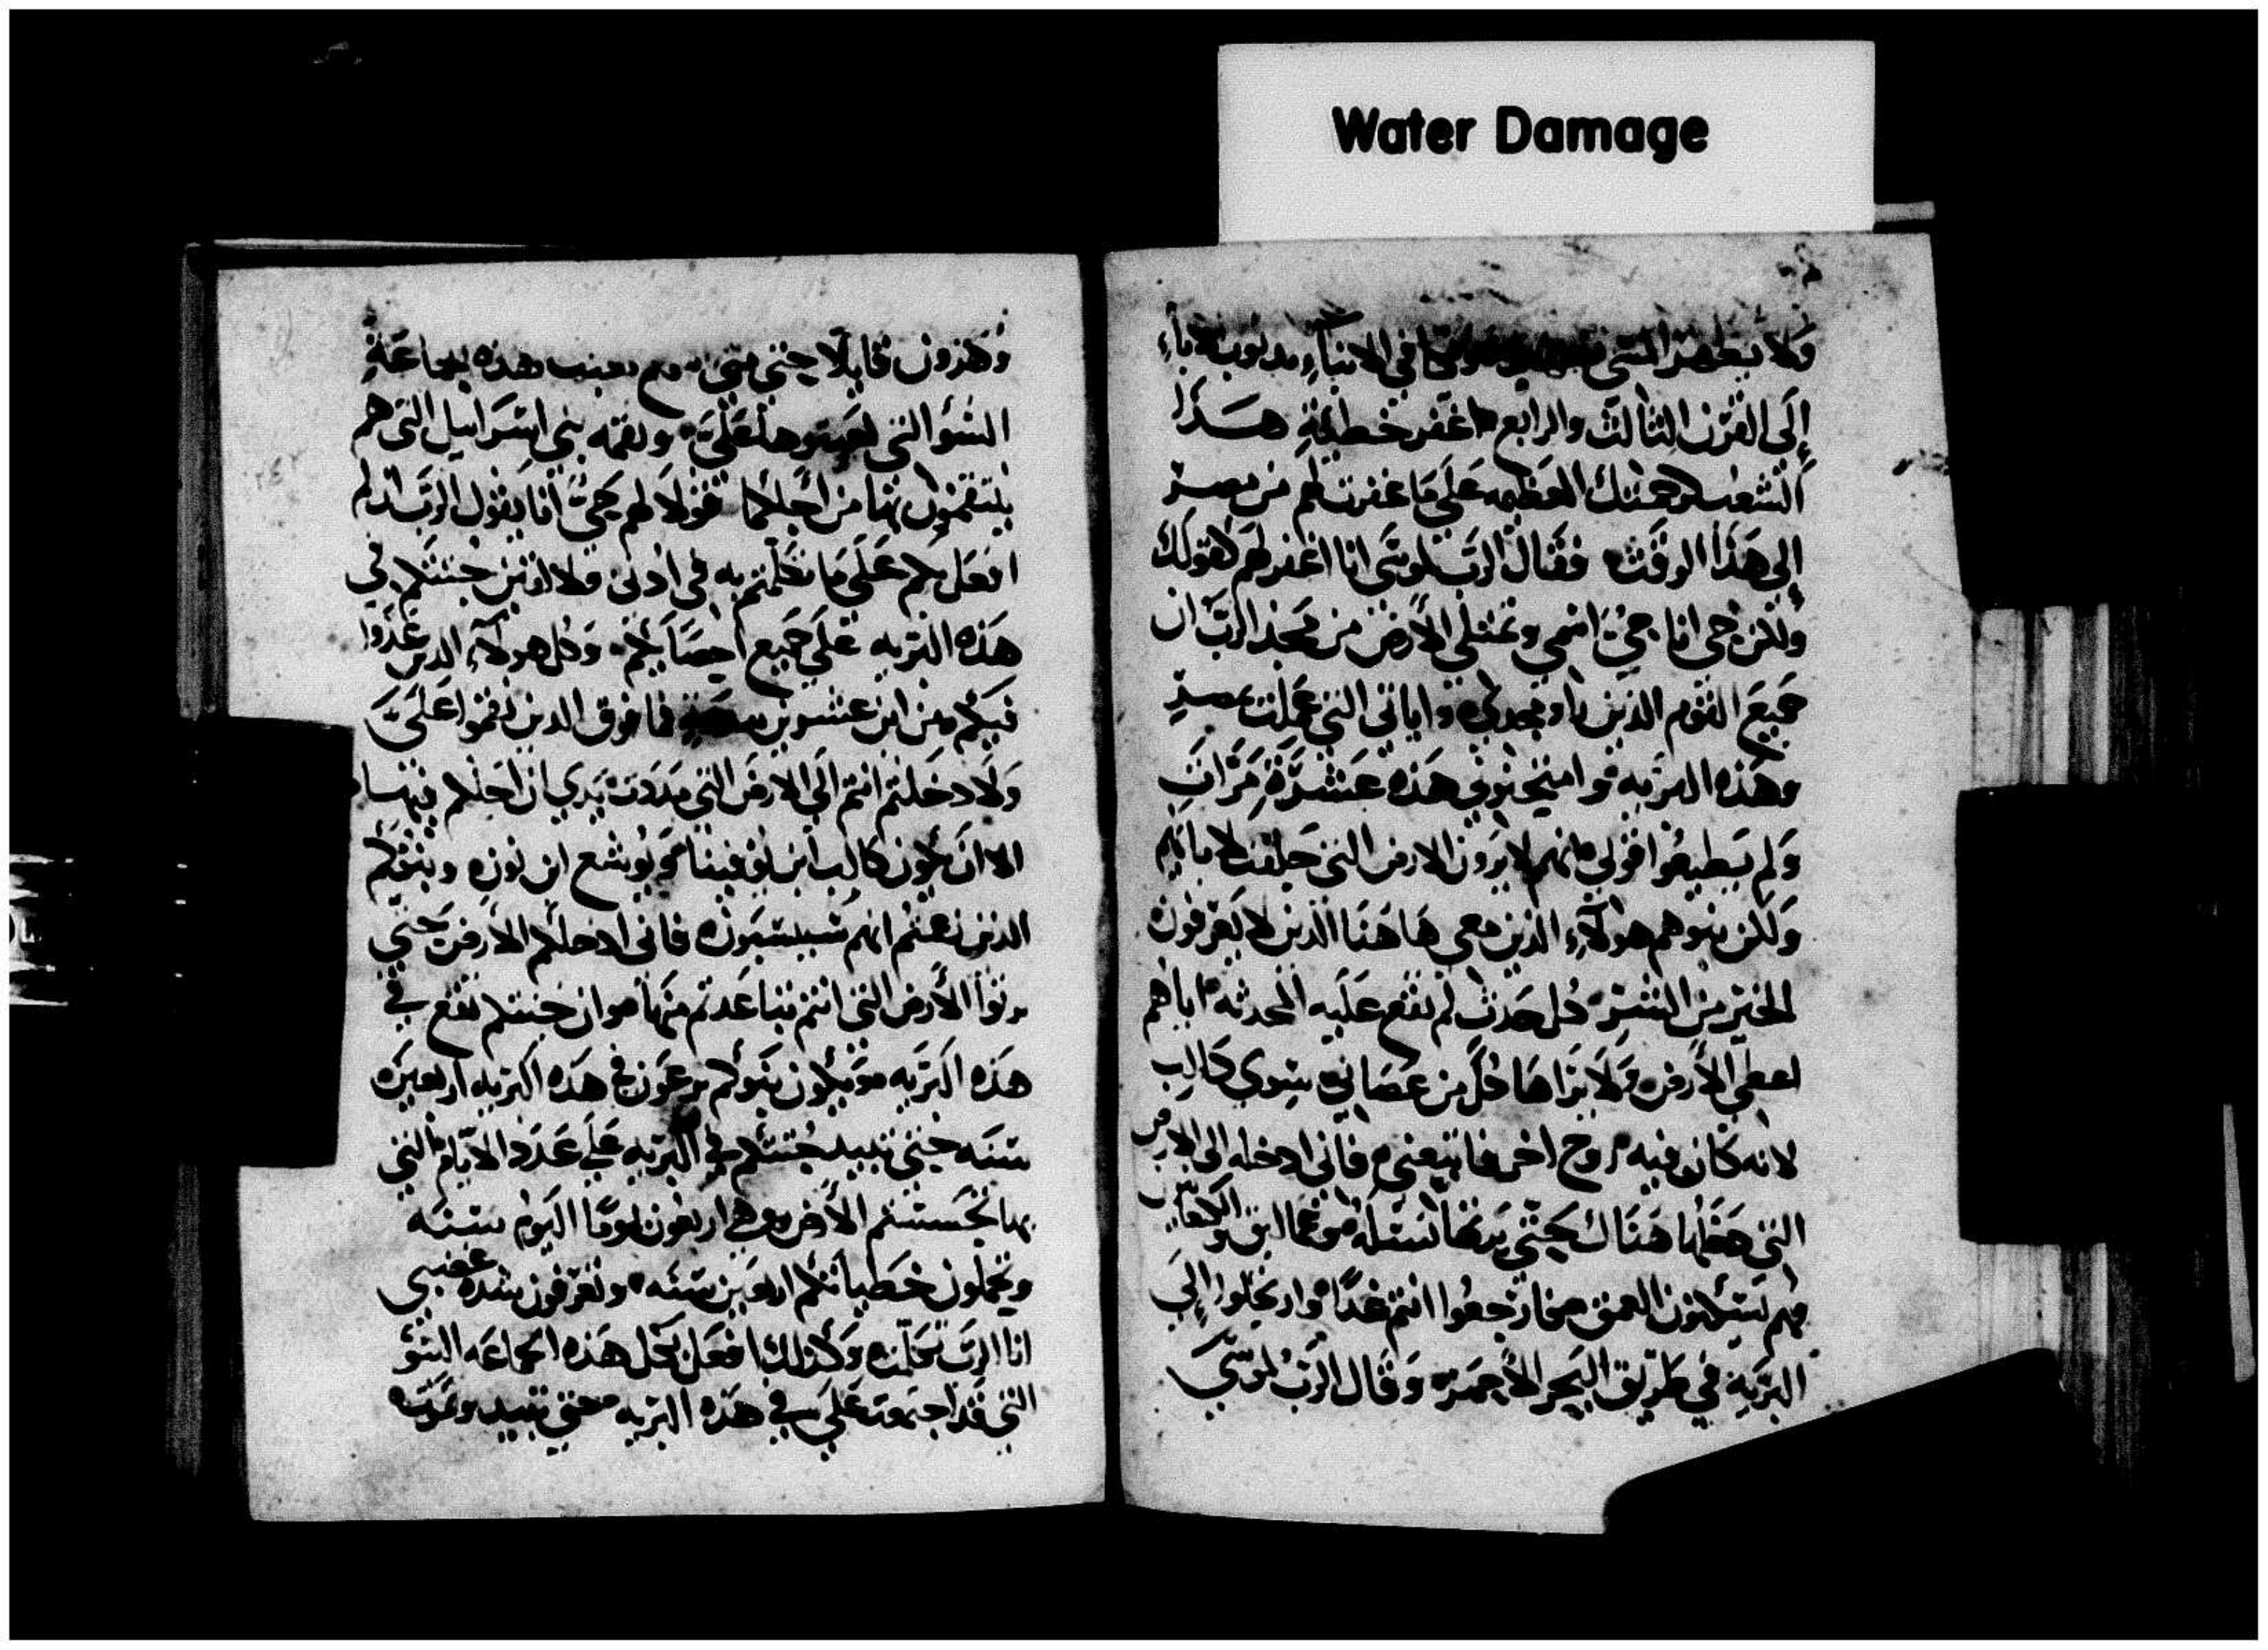 Water Damage
ولا يطهر في الابناء بدنوب الاباء
إلى القرن الثالث والرابع اغفر خطيئة هذا
الشعب كرحمتك العظيمه على ما غفرت لهم من مصر
إلى هذا الوقت فقال الرب لموسى انا اغفر لهم كقولك
ولكن حي انا حي اسمي وتمتلي الأرض من مجد الرب ان
جميع القوم الذين راوا مجدي واياتي التي عملت بمصر
وهذه البريه وامتحنوني هذه عشرة مرات
ولم يطيعوا قولي انهم لا يرون الارض التي حلفت لابايهم
ولكن بنوهم هولاء الذين معي هاهنا الذين لا يعرفون
الخير من الشر كل حدث لم تقع عليه الحدثه اياهم
اعطي الأرض ولا يراها كل من عصاني سوي كالب
لانه كان فيه روح اخر فاتبعني فاني ادخله الى الارض
التي دخلها هناك يحيث يرثها نسله عمالق والكنعانين
هم يسكنون العمق فارجعوا انتم غدا وارتحلوا إلى
البرية في طريق البحر الأحمر وقال الرب لموسي
وهرون قايلا حتى متى هذه الجماعة
السؤ التي علي ونقمه بني اسراييل التي هم
يتقمقمون بها من اجلكما قولا لهم حي انا يقول الرب ان لم
افعل بكم على ما تكلمتم به في ادني ولا جثتكم في
هذه البريه على جميع احصايكم وكل هولاء الدين عدوا
فيكم من ابن عشرين سنة فما فوق الدين تقمقموا علي
ولا دخلتم انتم الى الارض التي مددت يدي ان احلكم فيها
الا ان يكون كالب ابن يوفينا ويوشع ابن نون وبنوكم
الذين زعمتم انهم سيسبون فاني ادخلهم الارض حتي
يرثوا الأرض التي انتم تباعدتم منها وان جثتكم تقع في
هذه البريه ويكون بنوكم يرعون في هذه البريه اربعين
سنه حتي تبيد جثتكم في البريه علي عدد الايام التي
بها تجسستم الأرض وهي اربعون يوما اليوم سنه
وتحملون خطياتكم اربعين سنه وتعرفون شدة غضبي
انا الرب تكلمت وكذلك افعل بكل هذه الجماعه السؤ
التي قد اجتمعت علي في هذه البريه حتي تبيد وتموت